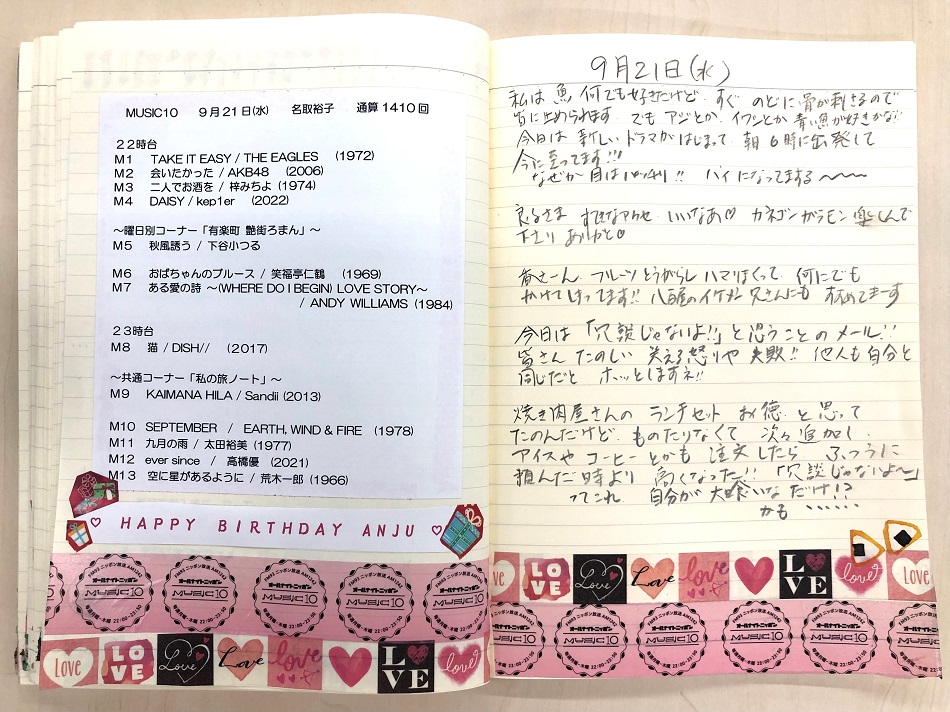 MUSIC10 9月21日(水) 名取裕子 通算1410回
22時台
M1 TAKE IT EASY / THE EAGLES (1972)
M2 会いたかった / AKB48 (2006)
M3 二人でお酒を / 梓みちよ (1974)
M4 DAISY / kep1er (2022)
～曜日別コーナー「有楽町 艶街ろまん」～
M5 秋風誘う / 下谷小つる
M6 おばちゃんのブルース / 笑福亭仁鶴 (1969)
M7 ある愛の詩 ～(WHERE DO I BEGIN) LOVE STORY～
/ ANDY WILLIAMS (1984)
23時台
M8 猫 / DISH// (2017)
～共通コーナー「私の旅ノート」～
M9 KAIMANA HILA / Sandii (2013)
M10 SEPTEMBER / EARTH, WIND & FIRE (1978)
M11 九月の雨 / 太田裕美 (1977)
M12 ever since / 高橋優 (2021)
M13 空に星があるように / 荒木一郎 (1966)
♡ HAPPY BIRTHDAY ANJU ♡
FM93 ニッポン放送 AM1242
オールナイトニッポン
MUSIC10
毎週月曜-木曜 22:00-23:50
Love LOVE Love Love love LOVE love
9月21日(水)
私は 魚 何でも好きだけど すぐ のどに骨が刺さるので
皆に止められます でも アジとか イワシとか 青い魚が好きかな
今日は 新しい ドラマが はじまって 朝 6時に出発して
今に至ってます!!!
なぜか 目はパッチリ!! ハイになってまする～～～
良るさま すてきなアクセ いいなあ♡ カネゴン ガラモン 楽しんで
下さり ありがと♡
フルーツとうがらし ハマりまくって 何にでも
かけてしまってます!! 八百屋のイケメン 兄さんにも すすめてまーす
今日は 「冗談じゃないよ!!」 と思うことの メール!!
皆さん たのしい 笑える怒りや 失敗!! 他人も自分と
同じだと ホッとしますネ!!
焼き肉屋さんの ランチセット お徳 と思って
たのんだけど ものたりなくて 次々追加し
アイスや コーヒーとかも 注文したら ふつうに
頼んだ時より 高くなった!! 「冗談じゃないよ～」
ってこれ 自分が 大喰いな だけ!?
かも ‥‥‥
LOVE Love Love love LOVE love Love
FM93 ニッポン放送 AM1242
オールナイトニッポン
MUSIC10
毎週月曜-木曜 22:00-23:50